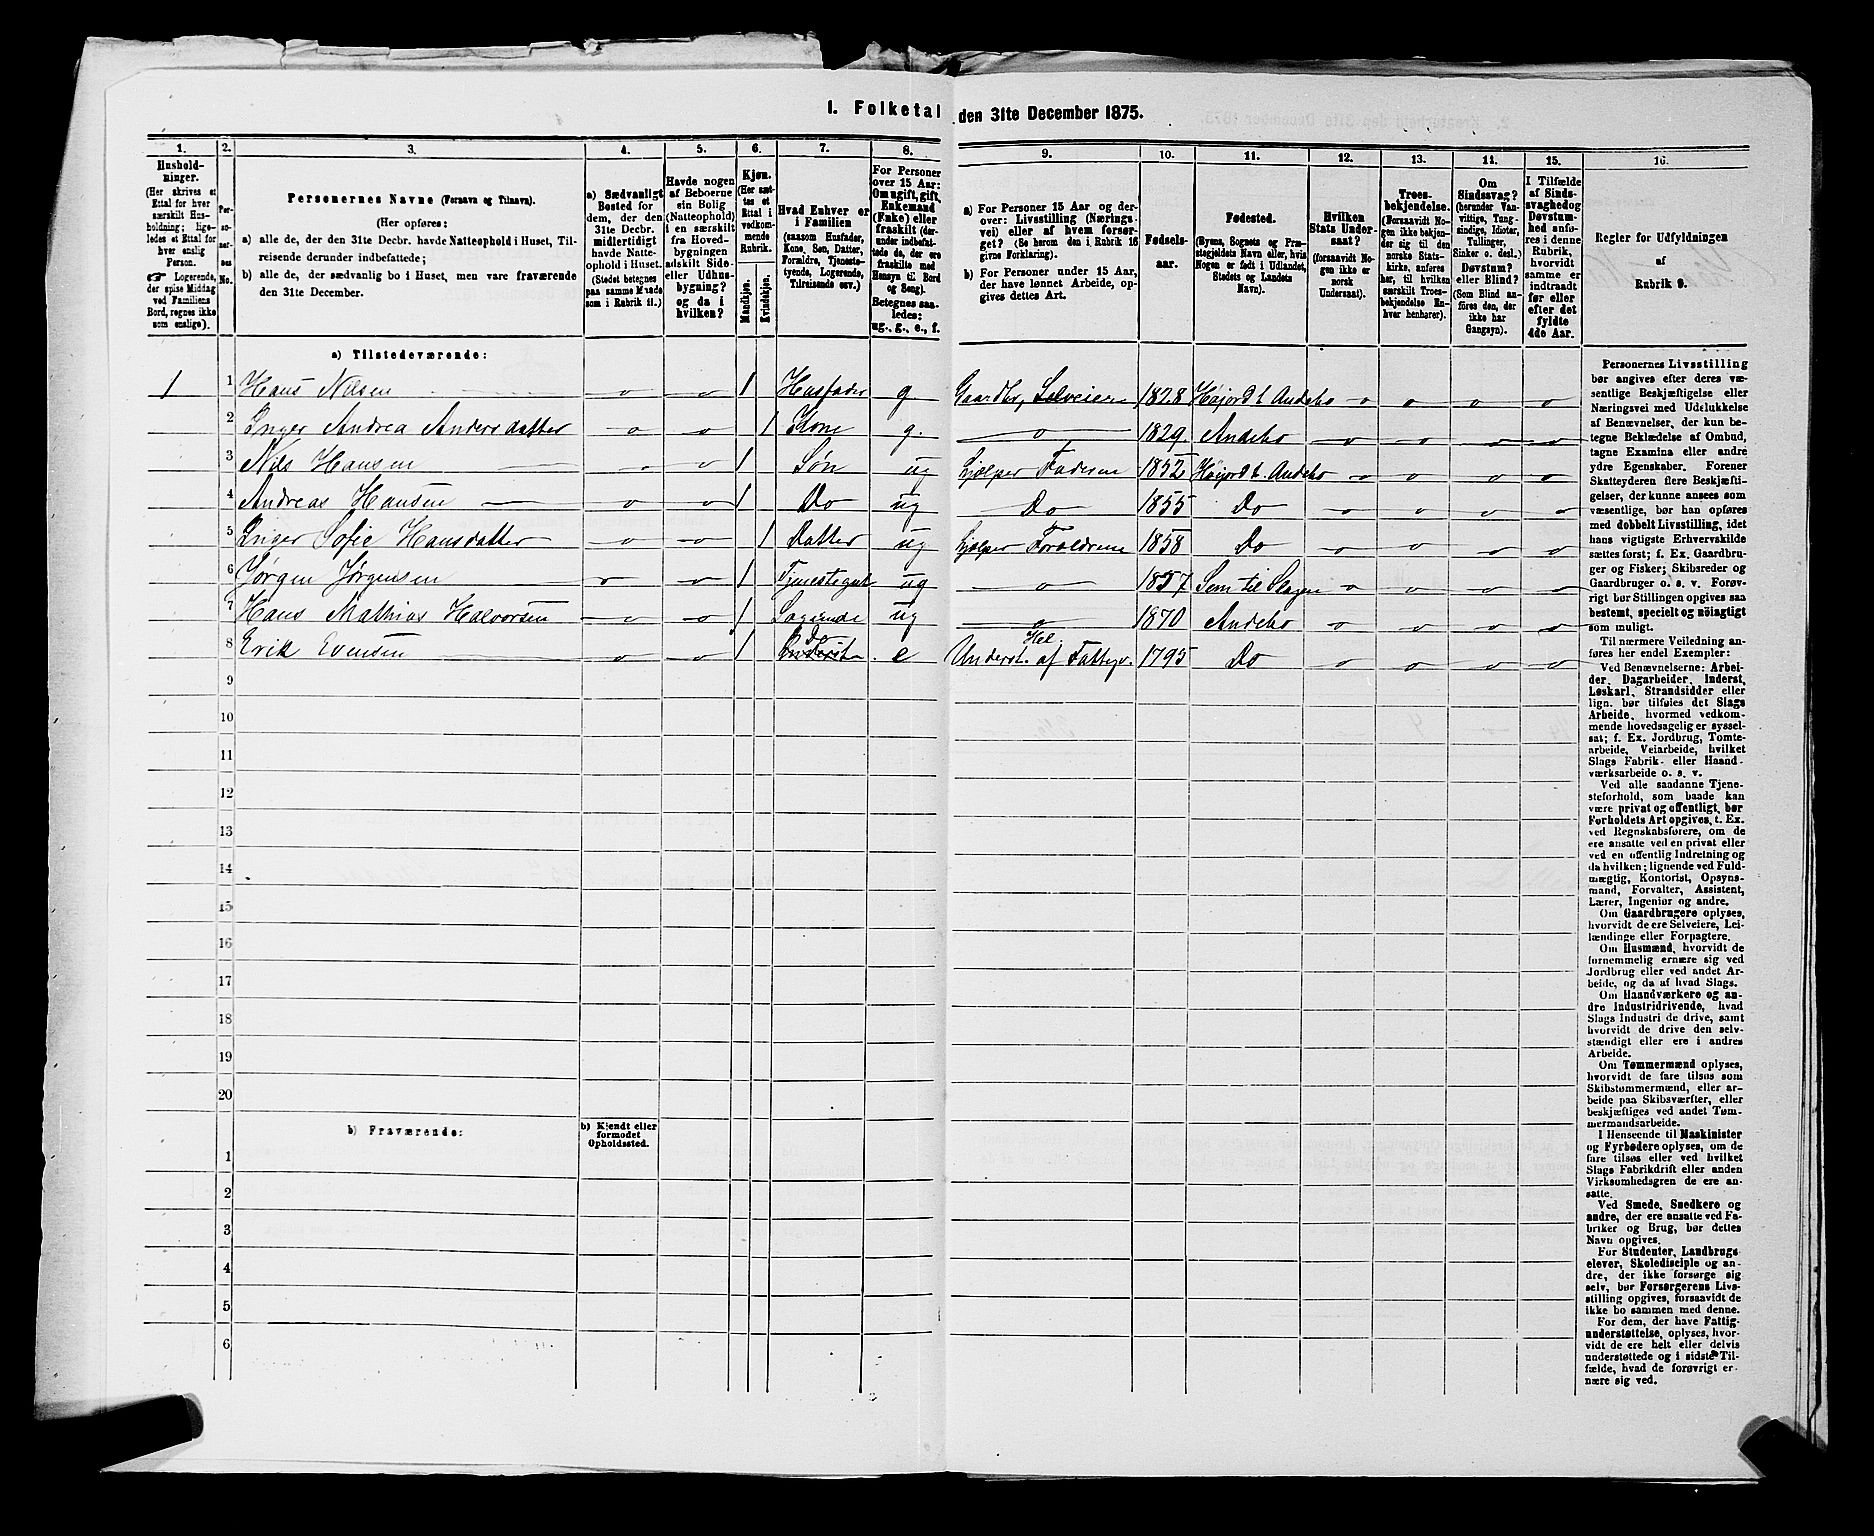 1. Folketal den 31te December 1875.
1. 2. 3. 4. 5. 6. 7. 8. 9. 10. 11. 12. 13. 14. 15. 16.
Hushold-
ninger.
(Her skrives et
Ettal for hver
særskilt Hus-
holdning; lige-
ledes et Ettal for
hver enslig
Person.
☞ Logerende,
der spise Middag
ved Familiens
Bord, regnes ikke
som enslige).
Per-
so-
ner-
nes
No.
Personernes Navne (Fornavn og Tilnavn).
(Her opføres:
a) alle de, der den 31te Decbr. havde Natteophold i Huset, Til-
reisende derunder indbefattede;
b) alle de, der sædvanlig bo i Huset, men vare fraværende
den 31te December.
a) Sædvanligt
Bosted for
dem, der den
31te Decbr.
midlertidigt
havde Natte-
ophold i Huset.
(Stedet betegnes
paa samme Maade
som i Rubrik 11.)
Havde nogen
af Beboerne
sin Bolig
(Natteophold)
i en særskilt
fra Hoved-
bygningen
adskilt Side-
eller Udhus-
bygning?
og da i
hvilken?
Kjøn.
(Her sæt-
tes et
Ettal i
vedkom-
mende
Rubrik.
Mandkjøn.
Kvindekjøn.
Hvad Enhver er
i Familien
(saasom Husfader,
Kone, Søn, Datter,
Forældre, Tjeneste-
tyende, Logerende,
Tilreisende osv.)
For Personer
over 15 Aar:
Om ugift, gift,
Enkemand
(Enke) eller
fraskilt (der-
under indbefat-
tede de, der ere
fraskilte med
Hensyn til Bord
og Seng).
Betegnes saa-
ledes:
ug., g., e., f.
a) For Personer 15 Aar og der-
over: Livsstilling (Nærings-
vei) eller af hvem forsør-
get? (Se herom den i Rubrik 16
givne Forklaring).
b) For Personer under 15 Aar,
der have lønnet Arbeide, op-
gives dettes Art.
Fødsels-
aar.
Fødested.
(Byens, Sognets og Præ-
stegjeldets Navn eller, hvis
Nogen er født i Udlandet,
Stedets og Landets
Navn).
Hvilken
Stats Under-
saat?
(forsaavidt No-
gen ikke er
norsk
Undersaat).
Troes-
bekjendelse.
(Forsaavidt No-
gen ikke bekjen-
der sig til den
norske Stats-
kirke, anføres
her, til hvilken
særskilt Troes-
bekjendelse En-
hver henhører).
Om
Sindssvag?
(herunder Van-
vittige, Tung-
sindige, Idioter,
Tullinger,
Sinker o. desl.)
Døvstum?
eller Blind?
(Som Blind an-
føres den, der
ikke har
Gangsyn).
I Tilfælde
af Sinds-
svaghed og
Døvstum-
hed anfø-
res i denne
Rubrik,
hvorvidt
samme er
indtraadt
før eller
efter det
fyldte
4de Aar.
Regler for Udfyldningen
af
Rubrik 9.
a) Tilstedeværende:
1 1 Hans Nilsen o o 1 Husfader g. Gaardbr, Selveier 1828 Høijord t. Andebo o o o o
2 Inger Andrea Andersdatter o o 1 Kone g. o 1829. Andebo o o o o
3 Nils Hansen o o 1 Søn ug hjælper Faderen 1852 Høijord t. Andebo o o o o
4 Andreas Hansen o o 1 Do ug Do 1855 Do o o o o
5 Inger Sofie Hansdatter o o 1 Datter ug hjælper Forældrene 1858 Do o o o o
6 Jørgen Jørgensen o o 1 Tjenestegut ug o 1857 Sem til Slagen o o o o
7 Hans Mathias Halvorsen o o 1 Logerende ug o 1870 Andebo o o o o
8 Erik Evensen o o 1 Do e Underst. Hel. af Fattigv. 1795 Do o o o o
9
10
11
12
13
14
15
16
17
18
19
20
b) Fraværende:
b) Kjendt eller
formodet
Opholdssted.
1
2
3
4
5
6
Personernes Livsstilling
bør angives efter deres væ-
sentlige Beskjæftigelse eller
Næringsvei med Udelukkelse
af Benævnelser, der kun be-
tegne Beklædelse af Ombud,
tagne Examina eller andre
ydre Egenskaber. Forener
Skatteyderen flere Beskjæfti-
gelser, der kunne ansees som
væsentlige, bør han opføres
med dobbelt Livsstilling, idet
hans vigtigste Erhvervskilde
sættes først; f. Ex. Gaardbru-
ger og Fisker; Skibsreder og
Gaardbruger o. s. v. Forøv-
rigt bør Stillingen opgives saa
bestemt, specielt og nöiagtigt
som muligt.
Til nærmere Veiledning an-
føres her endel Exempler:
Ved Benævnelserne: Arbei-
der, Dagarbeider, Inderst,
Løskarl, Strandsidder eller
lign. bør tilføies det Slags
Arbeide, hvormed vedkom-
mende hovedsagelig er syssel-
sat; f. Ex. Jordbrug, Tomte-
arbeide, Veiarbeide, hvilket
Slags Fabrik- eller Haand-
værksarbeide o. s. v.
Ved alle saadanne Tjene-
steforhold, som baade kan
være privat og offentligt, bør
Forholdets Art opgives, t. Ex.
ved Regnskabsførere, om de
ere ansatte ved en privat eller
ved en offentlig Indretning og
da hvilken; lignende ved Fuld-
mægtig, Kontorist, Opsyns-
mand, Forvalter, Assistent,
Lærer, Ingeniør og andre.
Om Gaardbrugere oplyses,
hvorvidt de ere Selveiere, Lei-
lændinge eller Forpagtere.
Om Husmænd, hvorvidt de
fornemmelig ernære sig ved
Jordbrug eller ved andet Ar-
beide, og da af hvad Slags.
Om Haandværkere og an-
dre Industridrivende, hvad
Slags Industri de drive, samt
hvorvidt de drive den selv-
stændigt eller ere i andres
Arbeide.
Om Tømmermænd oplyses,
hvorvidt de fare tilsøs som
Skibstømmermænd, eller ar-
beide paa Skibsværfter, eller
beskjæftiges ved andet Tøm-
mermandsarbeide.
I Henseende til Maskinister
og Fyrbødere oplyses, om de
fare tilsøs eller ved hvilket
Slags Fabrikdrift eller anden
Virksomhedsgren de ere an-
satte.
Ved Smede, Snedkere og
andre, der ere ansatte ved Fa-
briker og Brug, bør dettes
Navn opgives.
For Studenter, Landbrugs-
elever, Skoledisciple og an-
dre, der ikke forsørge sig
selv, bør Forsørgerens Livs-
stilling opgives, forsaavidt de
ikke bo sammen med denne.
For dem, der have Fattig-
understøttelse, oplyses, hvor-
vidt de ere helt eller delvis
understøttede og i sidste Til-
fælde, hvad de forøvrigt er-
nære sig ved.